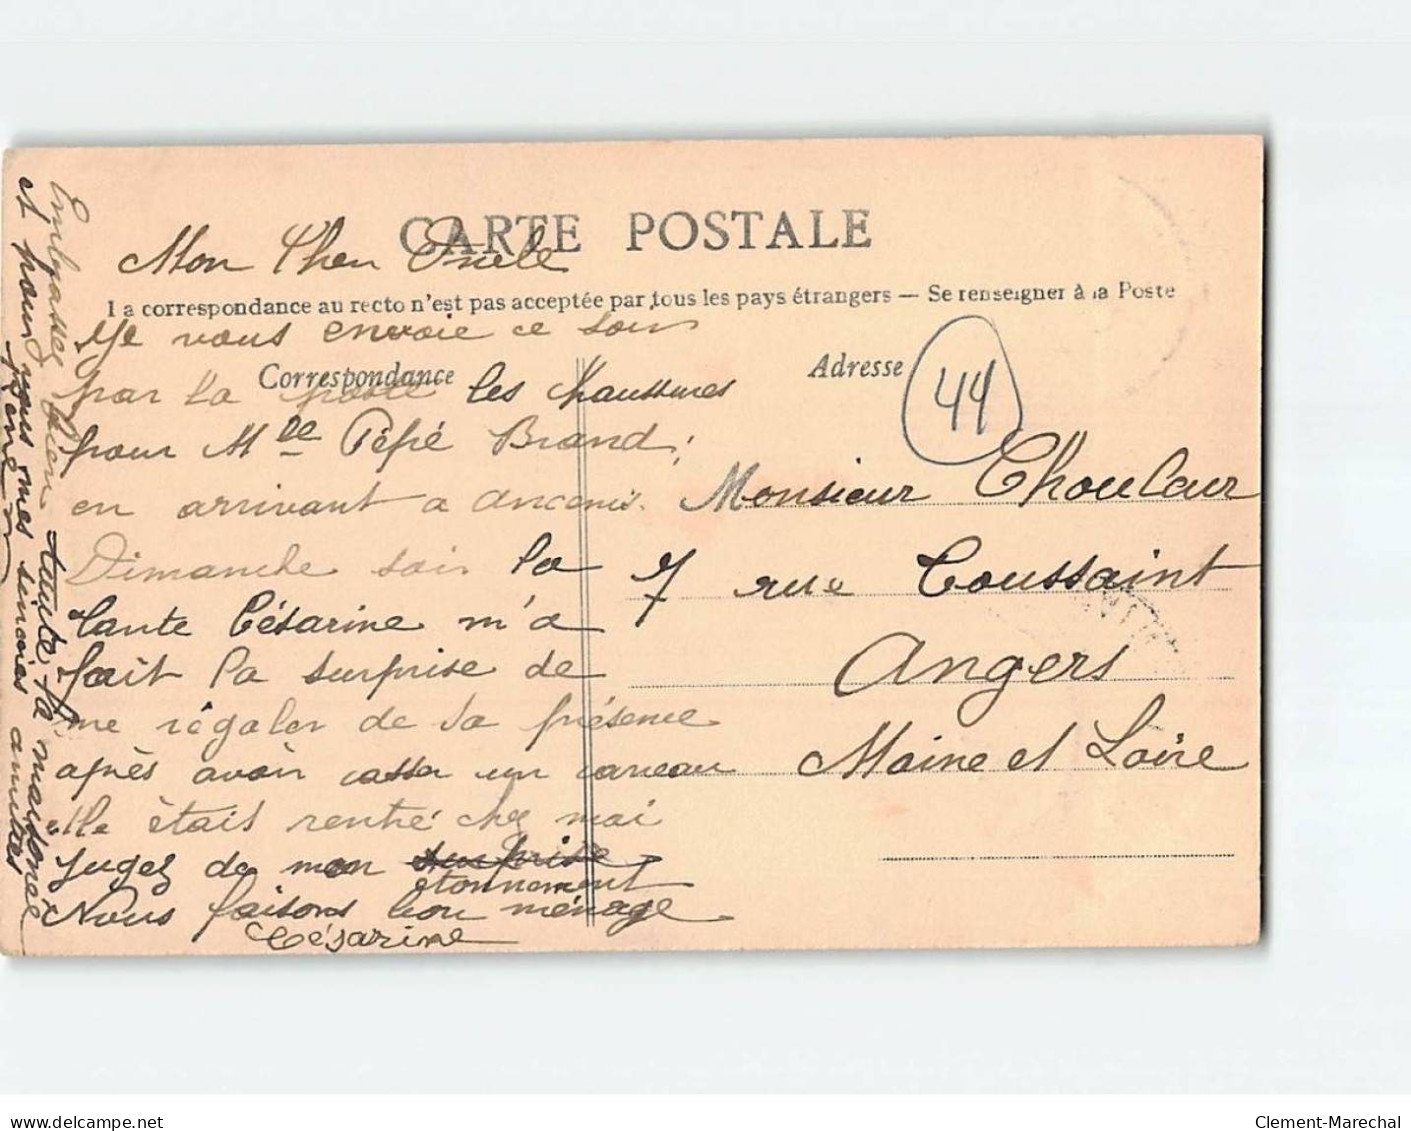 CARTE POSTALE
Mon Cher Oncle
La correspondance au recto n'est pas acceptée par tous les pays étrangers — Se renseigner à la Poste
Je vous envoie ce soir
Correspondance
Adresse
44
par la poste les chaussures
pour Mlle Pépé Briand,
en arrivant a ancenis.
Dimanche soir la
tante Césarine m'a
fait la surprise de
me régaler de sa présence
après avoir casser un carreau
elle étais rentré chez moi
Jugez de mon surprise
étonnement
Nous faisons bon ménage
Césarine
Monsieur Chouleur
7 rue Toussaint
Angers
Maine et Loire
Embrassez bien toute la maisonnée
et pour vous mes sincères amitiés
Clement-Marechal
www.delcampe.net